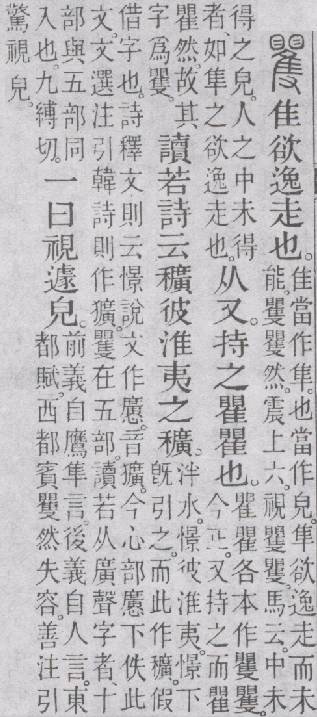 矍 隹欲逸走也。
隹當作隼。也當作皃。隼欲逸走而未
能。矍矍然。震上六。視矍矍。馬云。中未
得之皃。人之中未得
者、如隼之欲逸走也。
从又。持之瞿瞿也。
瞿瞿各本作矍矍。
今正。又持之而瞿
瞿然。故其
字爲矍。
讀若詩云穬彼淮夷之穬。
泮水。憬彼淮夷。憬下
旣引之。而此作穬。假
借字也。詩釋文則云憬說文作㦥。音獷。今心部㦥下佚此
文。文選注引韓詩則作獷。矍在五部。讀若从廣聲字者、十
部與五部同
入也。九縛切。
一曰視遽皃。
前義自鷹隼言。後義自人言。東
都賦。西都賓矍然失容。善注引
驚視皃。